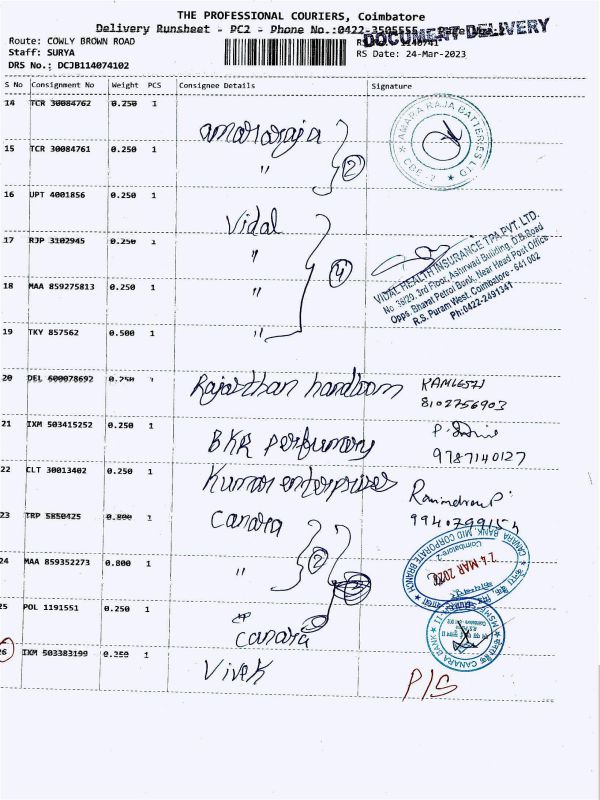 THE PROFESSIONAL COURIERS, Coimbatore
Delivery Runsheet - PC2 - Phone No.:0422-3505555
DOCUMENT DELIVERY
Route: COWLY BROWN ROAD
Staff: SURYA
RS Date: 24-Mar-2023
DRS No.: DCJB114074102
S No Consignment No Weight PCS Consignee Details Signature
14 TCR 30084762 0.250 1 amararaja
AMARA RAJA BATTERIES LTD
CBE-2
15 TCR 30084761 0.250 1 " 2
16 UPT 4001856 0.250 1 Vidal
17 RJP 3102945 0.250 1 "
VIDAL HEALTH INSURANCE TPA PVT. LTD.
No. 38/29, 3rd Floor, Ashirwad Building, D.B.Road
Opps. Bharat Petrol Bunk, Near Head Post Office
R.S. Puram West, Coimbatore - 641 002
Ph:0422-2491341
18 MAA 859275813 0.250 1 " 4
19 TKY 857562 0.500 1 "
20 DEL 600078692 0.250 1 Rajasthan handloom
8102756903
21 IXM 503415252 0.250 1 BKR perfumery
9787140127
22 CLT 30013402 0.250 1 Kumar enterprises
23 TRP 5850425 0.800 1 Canara
9940799154
CANARA BANK, MID CORPORATE BRANCH
Coimbatore-2
24 MAR
24 MAA 859352273 0.800 1 " 2
25 POL 1191551 0.250 1 Canara
CANARA BANK
26 IXM 503383199 0.250 1 Vivek P/S